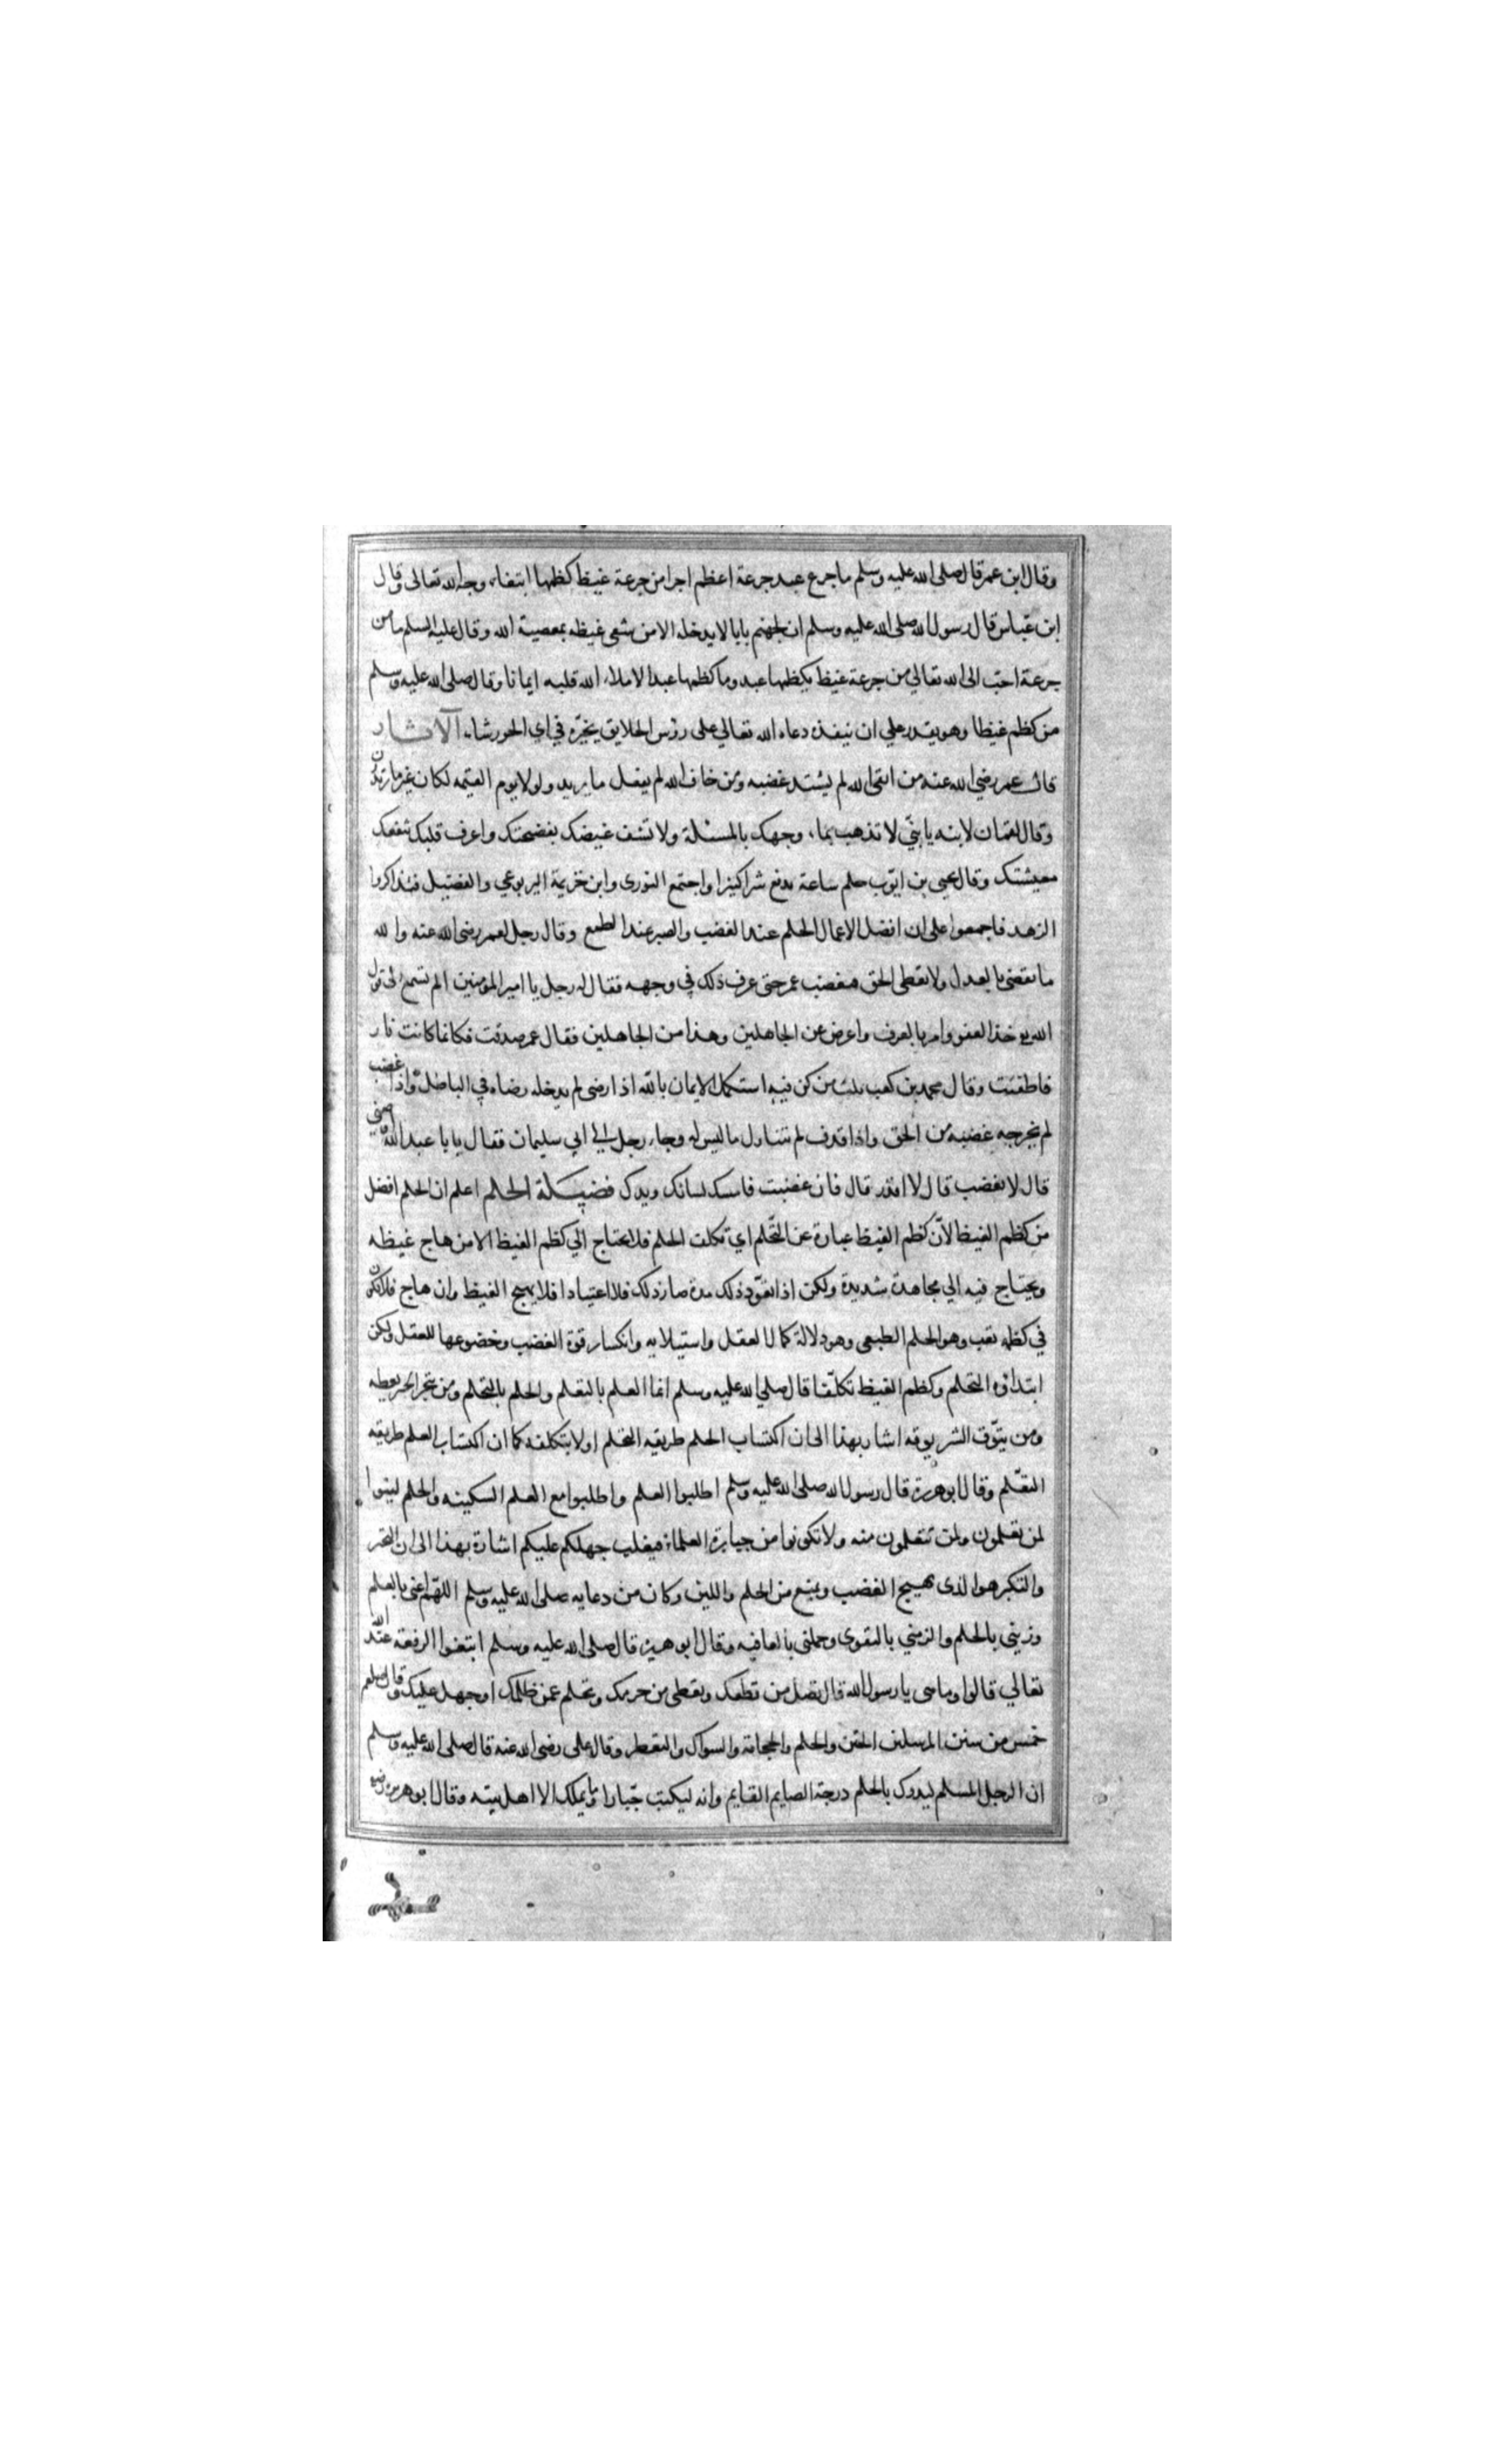 وقال ابن عمر قال صلى الله عليه وسلم ما جرع عبد جرعة اعظم اجرا من جرعة غيظ كظمها ابتغاء وجه الله تعالى وقال
ابن عباس قال رسول الله صلى الله عليه وسلم ان لجهنم بابا لا يدخله الا من شفى غيظه بمعصية الله وقال عليه السلم ما من
جرعة احب الى الله تعالي من جرعة غيظ يكظمها عبد وما كظمها عبد الا ملاء الله قلبه ايمانا وقال صلى الله عليه وسلم
من كظم غيظا وهو يقدر علي ان ينفذه دعاه الله تعالي على رؤس الخلايق يخيره في اي الحور شاء الآثار
قال عمر رضي الله عنه من اتقى الله لم يشتد غضبه ومن خاف الله لم يفعل ما يريد ولولا يوم القيمه لكان غير ما ترون
وقال لقمان لابنه يا بني لا تذهب بماء وجهك بالمسئلة ولا تشف غيضك بفضحتك واعرف قلبك تنفعك
معيشتك وقال يحيى بن ايوب حلم ساعة يدفع شرا كثيرا واجتمع الثورى وابن خزيمة اليربوعي والفضيل فتذاكروا
الزهد فاجمعوا على ان افضل الاعمال الحلم عند الغضب والصبر عند الطمع وقال رجل لعمر رضى الله عنه والله
ما تقضى بالعدل ولا تعطى الحق فغضب عمر حتى عرف ذلك في وجهه فقال له رجل يا امير المؤمنين الم تسمع الى قول
الله خذ العفو وامر بالعرف واعرض عن الجاهلين وهذا من الجاهلين فقال عمر صدقت فكانما كانت نار
فاطفئت وقال محمد بن كعب ثلث من كن فيه استكمل الايمان بالله اذا رضى لم يدخله رضاه في الباطل واذا غضب
لم يخرجه غضبه من الحق واذا قدر لم يتناول ما ليس له وجاء رجل الي ابي سليمان فقال يا با عبد الله اوصني
قال لا تغضب قال لا اقدر قال فان غضبت فامسك لسانك ويدك فضيلة الحلم اعلم ان الحلم افضل
من كظم الغيظ لان كظم الغيظ عبارة عن التحلم اي تكلف الحلم فلا يحتاج الي كظم الغيظ الا من هاج غيظه
ويحتاج فيه الي مجاهدة شديدة ولكن اذا تعود ذلك مدة صار ذلك اعتيادا فلا يهيج الغيظ وان هاج فلا يكون
في كظمه تعب وهو الحلم الطبيعى وهو دلالة كمال العقل واستيلايه وانكسار قوة الغضب وخضوعها للعقل ولكن
ابتداؤه التحلم وكظم الغيظ تكلفا قال صلى الله عليه وسلم انما العلم بالتعلم والحلم بالتحلم ومن يتخير الخير يعطه
ومن يتوق الشر يوقه اشار بهذا الى ان اكتساب الحلم طريقه التحلم اولا بتكلفه كما ان اكتساب العلم طريقه
التعلم وقال ابو هريرة قال رسول الله صلى الله عليه وسلم اطلبوا العلم واطلبوا مع العلم السكينه والحلم لينوا
لمن تعلمون ولمن تتعلمون منه ولا تكونوا من جبابرة العلماء فيغلب جهلكم عليكم اشارة بهذا الى ان التجبر
والتكبر هو الذى يهيج الغضب ويمنع من الحلم واللين وكان من دعايه صلى الله عليه وسلم اللهم اغنى بالعلم
وزيني بالحلم والزمني بالتقوى وجملنى بالعافيه وقال ابو هريرة قال صلى الله عليه وسلم ابتغوا الرفعة عند الله
تعالي قالوا وما هى يا رسول الله قال تصل من قطعك وتعطى من حرمك وتحلم عمن ظلمك او جهل عليك وقال صلعم
خمس من سنن المرسلين الختن والحلم والحجامة والسواك والتعطر وقال على رضى الله عنه قال صلى الله عليه وسلم
ان الرجل المسلم ليدرك بالحلم درجة الصايم القايم وانه ليكتب جبارا وما يملك الا اهل بيته وقال ابو هريرة